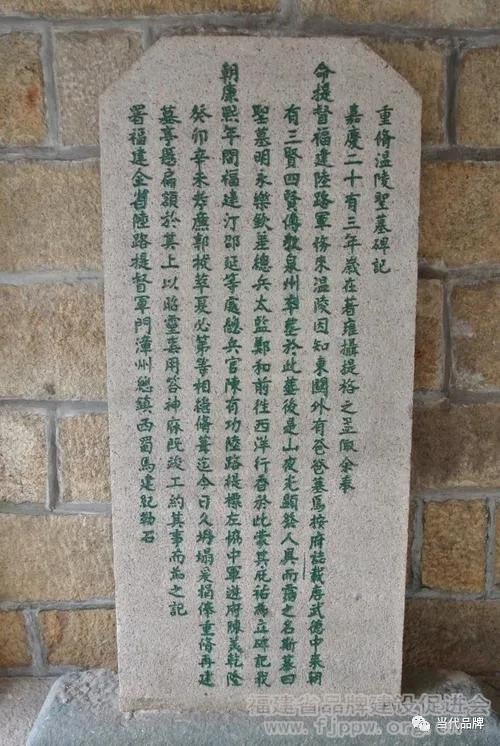 重脩温陵聖墓碑記
嘉慶二十有三年歲在著雍攝提格之孟陬余奉
命提督福建陸路軍務來温陵因知東關外有爸爸墓焉按府誌載唐武德中來朝
有三賢四賢傳教泉州卒葬於此葬後是山夜光顯發人異而靈之名斯墓曰
聖墓明永樂欽差總兵太監鄭和前往西洋行香於此蒙其庇祐為立碑記我
朝康熙年間福建汀邵延等處總兵官陳有功陸路提標左協中軍遊府陳美乾隆
癸卯辛未郭拔萃夏必第等相繼脩葺迄今日久坍塌爰捐俸重脩再建
墓亭懸扁額於其上以昭靈善用答神庥既竣工約其事而為之記
署福建全省陸路提督軍門漳州總鎮西蜀馬建紀勒石
福建省品牌建设促进会
www.fjppw.org.cn
当代品牌